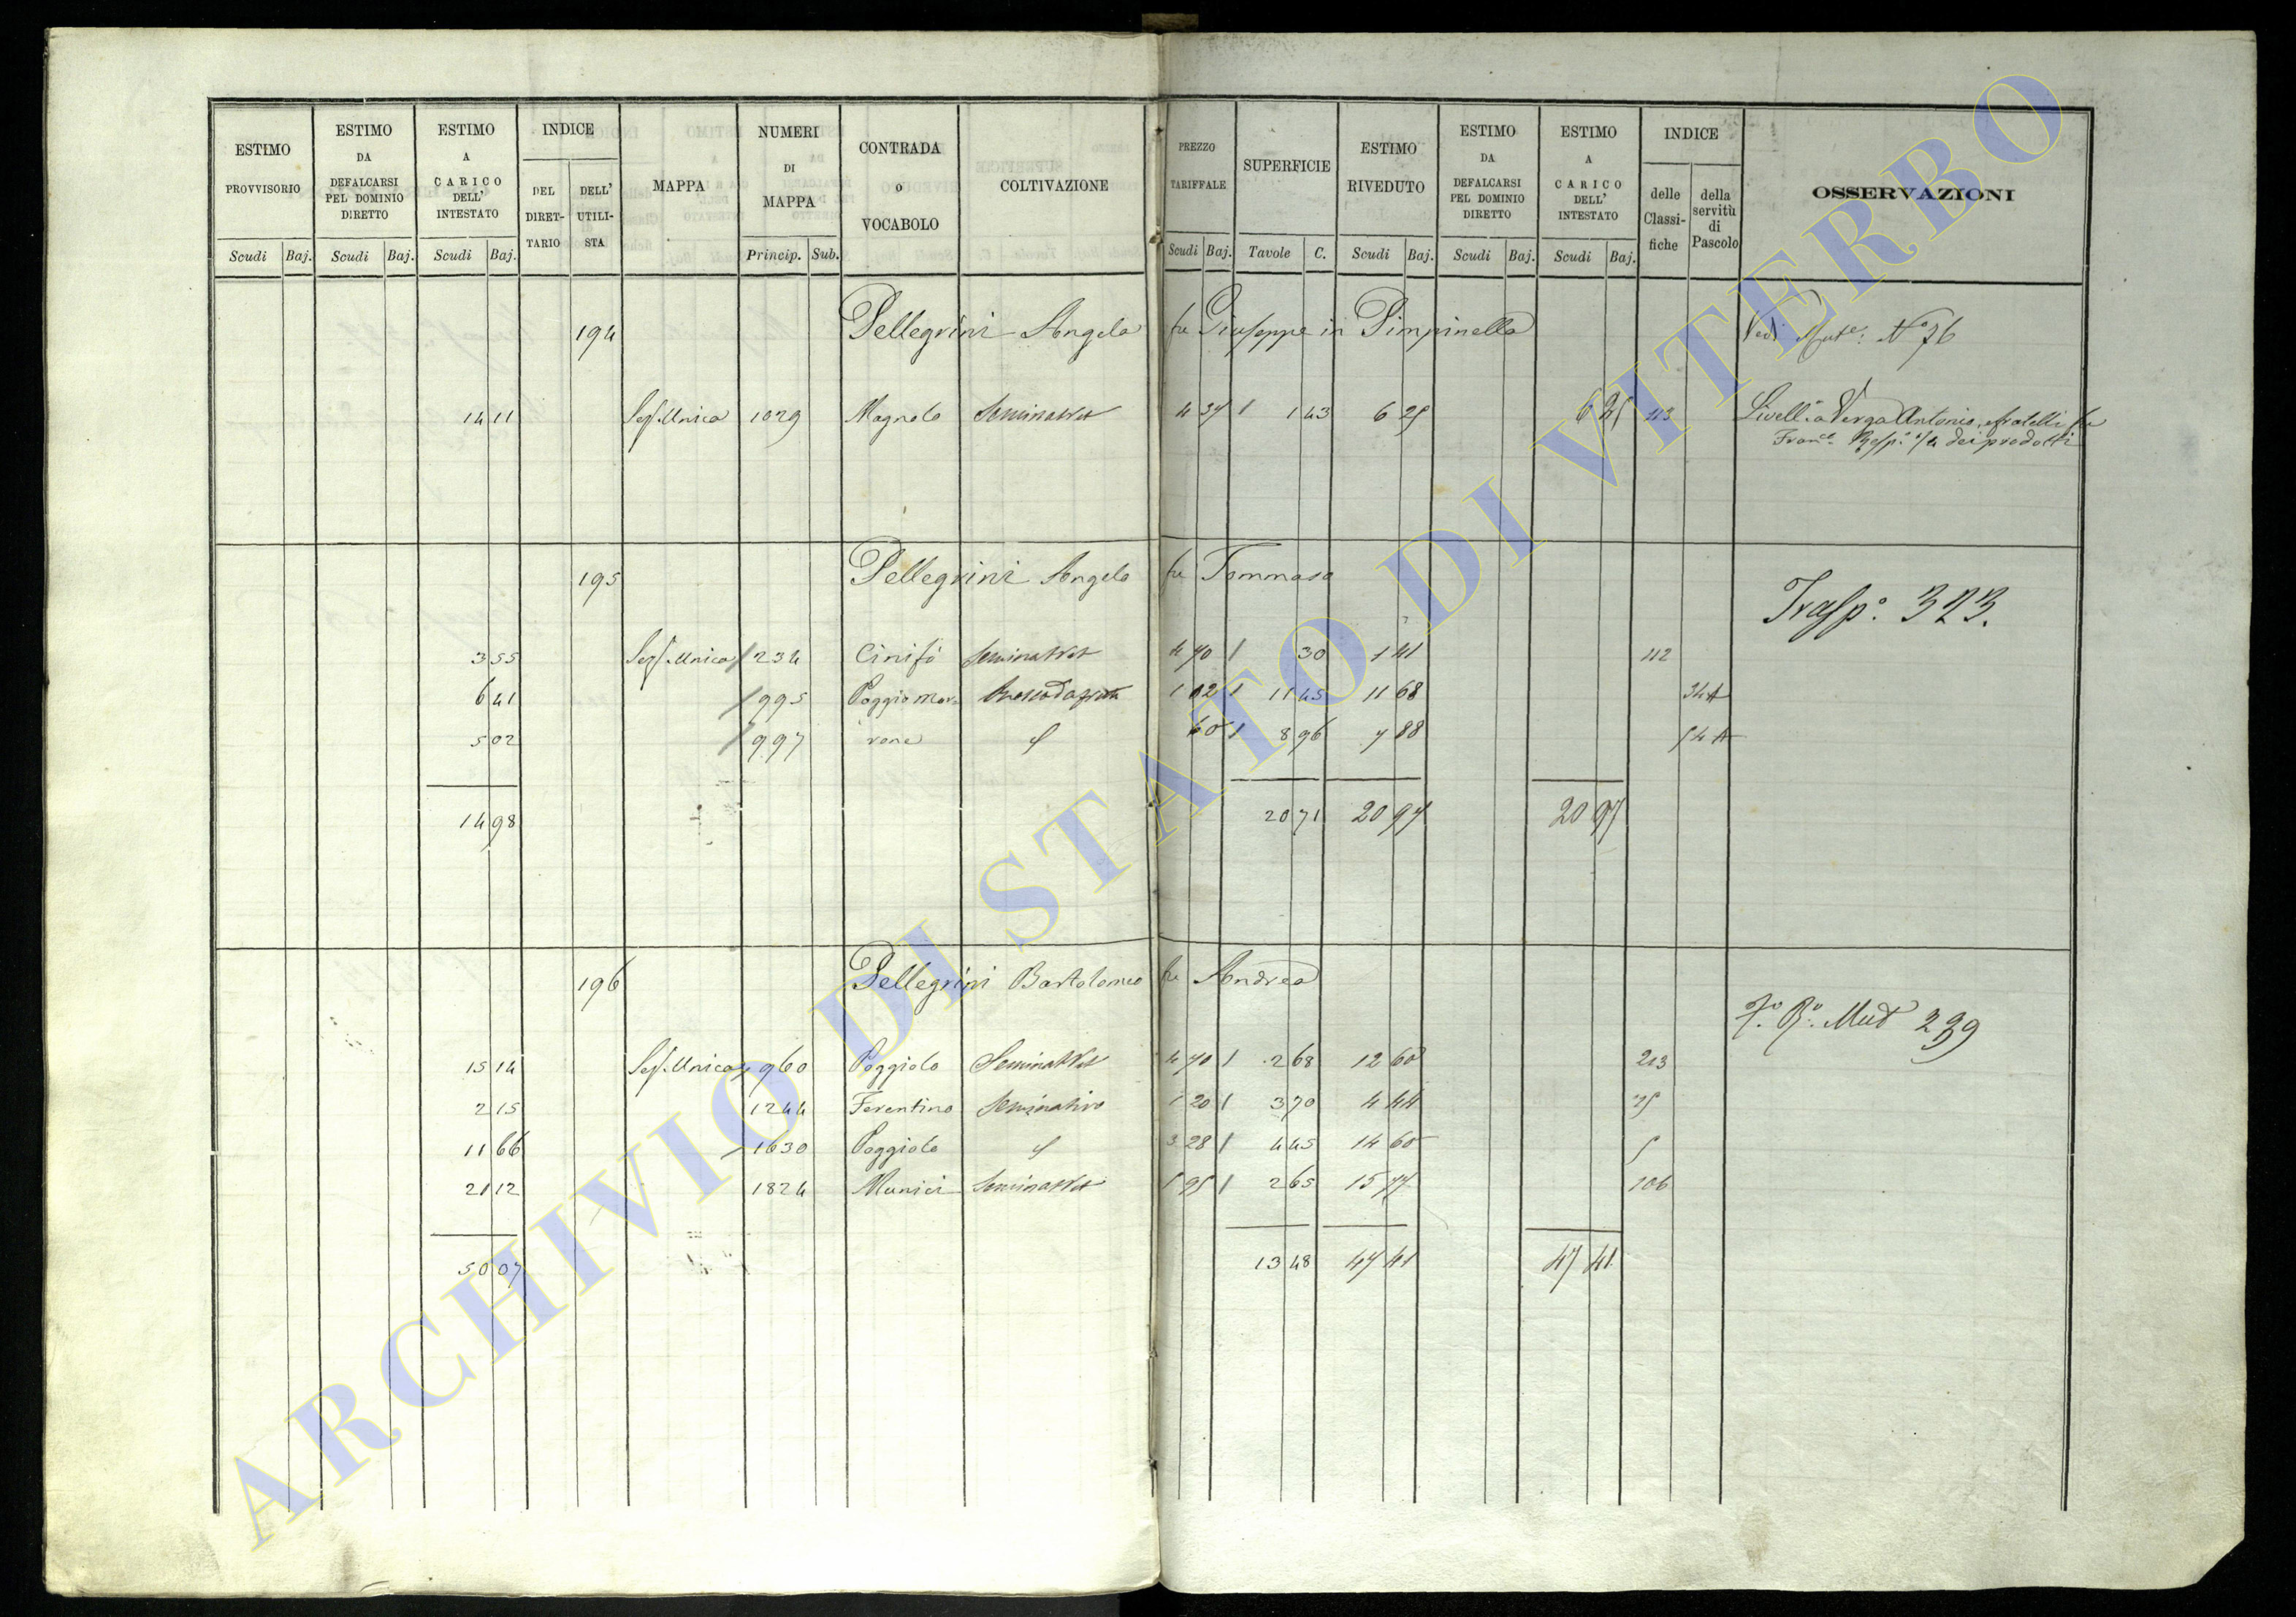 ESTIMO PROVVISORIO Scudi Baj.
ESTIMO DA DEFALCARSI PEL DOMINIO DIRETTO Scudi Baj.
ESTIMO A CARICO DELL' INTESTATO Scudi Baj.
INDICE DEL DIRET-TARIO DELL' UTILI-STA
MAPPA
NUMERI DI MAPPA Princip. Sub.
CONTRADA o VOCABOLO
COLTIVAZIONE
PREZZO TARIFFALE Scudi Baj.
SUPERFICIE Tavole C.
ESTIMO RIVEDUTO Scudi Baj.
ESTIMO DA DEFALCARSI PEL DOMINIO DIRETTO Scudi Baj.
ESTIMO A CARICO DELL' INTESTATO Scudi Baj.
INDICE delle Classi-fiche della servitù di Pascolo
OSSERVAZIONI
194 Pellegrini Angela fu Giuseppe in Pimpinella Vedi N° 76
14 11 Sez. Unica 1029 Magnolo 1 43 6 25 113 Livell.a Verga Antonio, e fratelli fu
Franc. Risp. dei prodotti
195 Pellegrini Angelo fu Tommaso
Trasp.° 323.
3 55 Sez. Unica 234 Cinifo 4 70 30 1 41 112
6 41 995 Poggio Mar 1 02 11 45 11 68 34 A
5 02 997 rone 8 96 7 88 54 A
14 98 20 71 20 97 20 97
196 Pellegrini Bartolomeo fu Andrea
Mut 239
15 14 Sez. Unica 960 Poggiolo 4 70 2 68 12 60 213
2 15 1244 Ferentino Seminativo 1 20 3 70 4 44 75
11 66 1630 Poggiolo 3 28 4 45 14 60 5
21 12 1824 Munici 5 95 2 65 15 77 106
50 07 13 48 47 41 47 41
ARCHIVIO DI STATO DI VITERBO